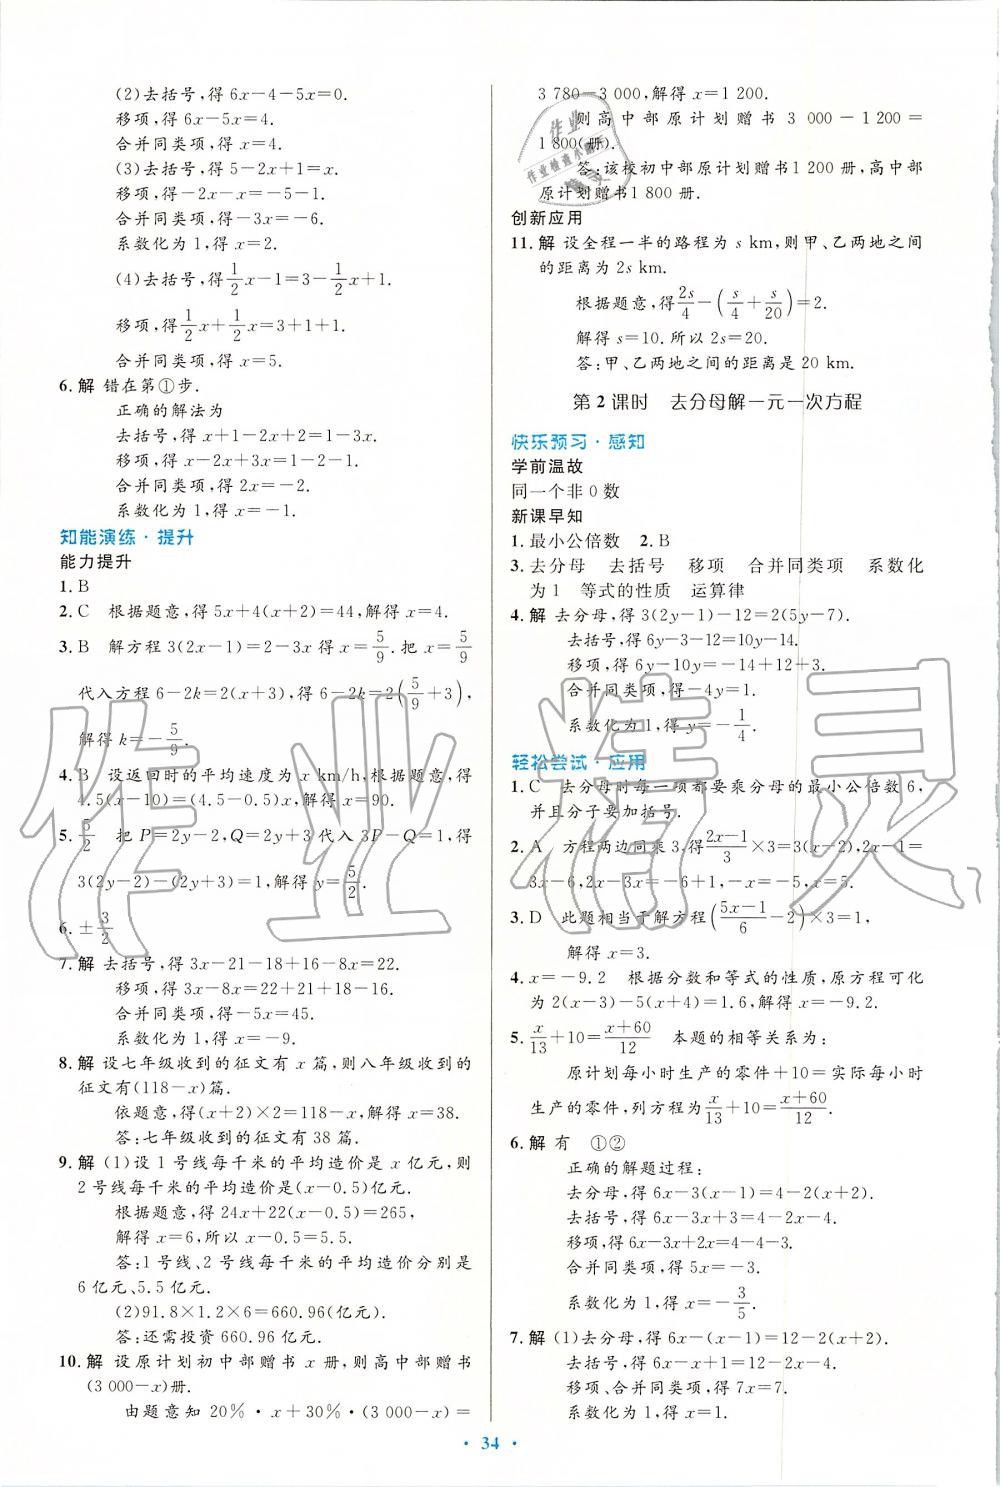 (2)去括号,得 6x-4-5x=0.
移项,得 6x-5x=4.
合并同类项,得 x=4.
(3)去括号,得 5-2x+1=x.
移项,得-2x-x=-5-1.
合并同类项,得-3x=-6.
系数化为 1,得 x=2.
(4)去括号,得 1/2 x-1=3-1/2 x+1.
移项,得 1/2 x+1/2 x=3+1+1.
合并同类项,得 x=5.
6. 解 错在第①步.
正确的解法为
去括号,得 x+1-2x+2=1-3x.
移项,得 x-2x+3x=1-1-2.
合并同类项,得 2x=-2.
系数化为 1,得 x=-1.
知能演练·提升
能力提升
1. B
2. C 根据题意,得 5x+4(x+2)=44,解得 x=4.
3. B 解方程 3(2x-1)=2-3x 得 x=5/9. 把 x=5/9
代入方程 6-2k=2(x+3),得 6-2k=2(5/9+3),
解得 k=-5/9.
4. B 设返回时的平均速度为 x km/h,根据题意,得
4.5(x-10)=(4.5-0.5)x,解得 x=90.
5. 5/2 把 P=2y-2,Q=2y+3 代入 3P-Q=1,得
3(2y-2)-(2y+3)=1,解得 y=5/2.
6. ±3/2
7. 解 去括号,得 3x-21-18+16-8x=22.
移项,得 3x-8x=22+21+18-16.
合并同类项,得-5x=45.
系数化为 1,得 x=-9.
8. 解 设七年级收到的征文有 x 篇,则八年级收到的
征文有(118-x)篇.
依题意,得(x+2)×2=118-x,解得 x=38.
答:七年级收到的征文有 38 篇.
9. 解 (1)设 1 号线每千米的平均造价是 x 亿元,则
2 号线每千米的平均造价是(x-0.5)亿元.
根据题意,得 24x+22(x-0.5)=265,
解得 x=6,所以 x-0.5=5.5.
答:1 号线、2 号线每千米的平均造价分别是
6 亿元、5.5 亿元.
(2)91.8×1.2×6=660.96(亿元).
答:还需投资 660.96 亿元.
10. 解 设原计划初中部赠书 x 册,则高中部赠书
(3 000-x)册.
由题意知 20%·x+30%·(3 000-x)=
3 780-3 000,解得 x=1 200.
则高中部原计划赠书 3 000-1 200=
1 800(册).
答:该校初中部原计划赠书 1 200 册,高中部
原计划赠书 1 800 册.
创新应用
11. 解 设全程一半的路程为 s km,则甲、乙两地之间
的距离为 2s km.
根据题意,得 2s/4-(s/4+s/20)=2.
解得 s=10. 所以 2s=20.
答:甲、乙两地之间的距离是 20 km.
第 2 课时 去分母解一元一次方程
快乐预习·感知
学前温故
同一个非 0 数
新课早知
1. 最小公倍数 2. B
3. 去分母 去括号 移项 合并同类项 系数化
为 1 等式的性质 运算律
4. 解 去分母,得 3(2y-1)-12=2(5y-7).
去括号,得 6y-3-12=10y-14.
移项,得 6y-10y=-14+12+3.
合并同类项,得-4y=1.
系数化为 1,得 y=-1/4.
轻松尝试·应用
1. C 去分母时每一项都要乘分母的最小公倍数 6,
并且分子要加括号.
2. A 方程两边同乘 3,得 (2x-1)/3×3=3(x-2),2x-1=
3x-6,2x-3x=-6+1,-x=-5,x=5.
3. D 此题相当于解方程((5x-1)/6-2)×3=1,
解得 x=3.
4. x=-9.2 根据分数和等式的性质,原方程可化
为 2(x-3)-5(x+4)=1.6,解得 x=-9.2.
5. x/13+10=(x+60)/12 本题的相等关系为:
原计划每小时生产的零件+10=实际每小时
生产的零件,列方程为 x/13+10=(x+60)/12.
6. 解 有 ①②
正确的解题过程:
去分母,得 6x-3(x-1)=4-2(x+2).
去括号,得 6x-3x+3=4-2x-4.
移项,得 6x-3x+2x=4-4-3.
合并同类项,得 5x=-3.
系数化为 1,得 x=-3/5.
7. 解 (1)去分母,得 6x-(x-1)=12-2(x+2).
去括号,得 6x-x+1=12-2x-4.
移项、合并同类项,得 7x=7.
系数化为 1,得 x=1.
· 34 ·
作业精灵
作业
作业检查小助手